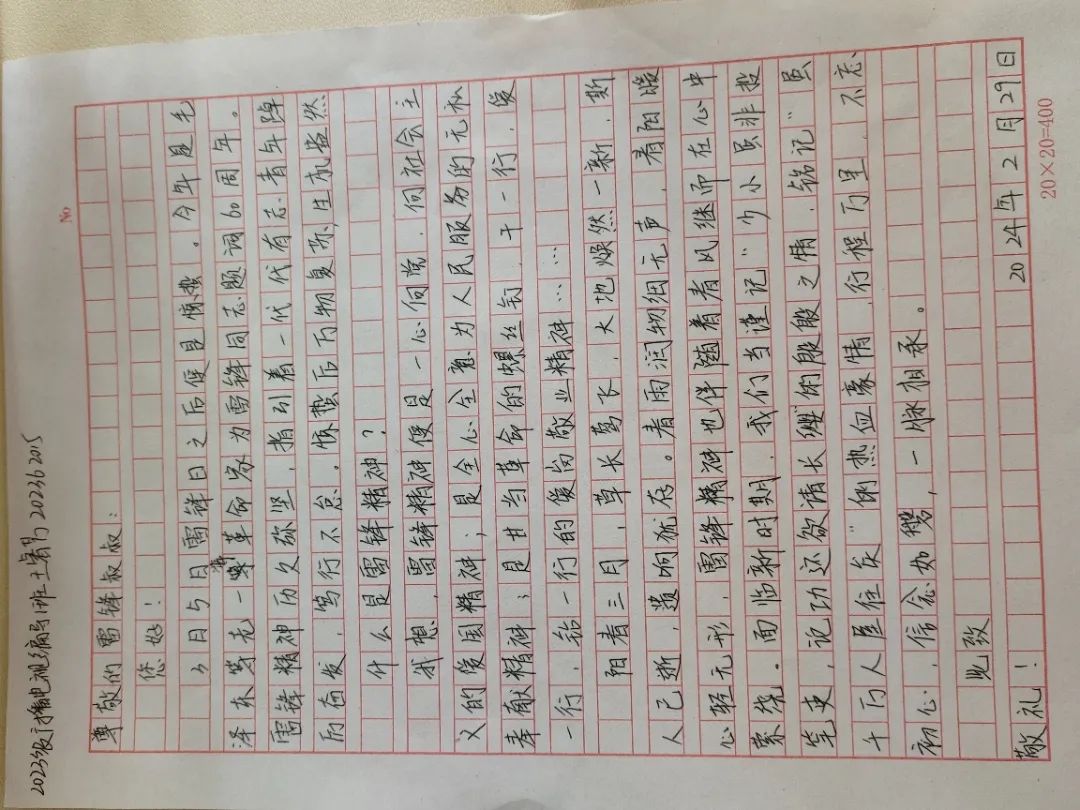 2023级广播电视编导1班 2023b2015
No
尊敬的雷锋叔叔：
您好！
3月5日雷锋日之后便是惊蛰。今年是毛
泽东等老一辈革命家为雷锋同志题词60周年。
雷锋精神历久弥坚，指引着一代代有志青年踔
厉奋发，笃行不怠。惊蛰后万物复弥，生机盎然
什么是雷锋精神？
我想，雷锋精神便是一心向党、向社会主
义的爱国精神；是全心全意为人民服务的无私
奉献精神；是甘当革命的螺丝钉，干一行、爱
一行、钻一行的爱岗敬业精神……
阳春三月，草长莺飞，大地焕然一新，斯
人已逝，遗响犹存。春雨润物细无声，春阳暖
心轻无形，雷锋精神也伴随着春风继而在心中
萦绕。面临新时期，我们当谨记“少小虽非投
笔吏，记功还欲请长缨”的殷殷之情，铭记“虽
千万人吾往矣”的热血豪情，行程万里，不忘
初心，信念如磐，一脉相承。
此致
敬礼！
2024年2月29日
20×20=400